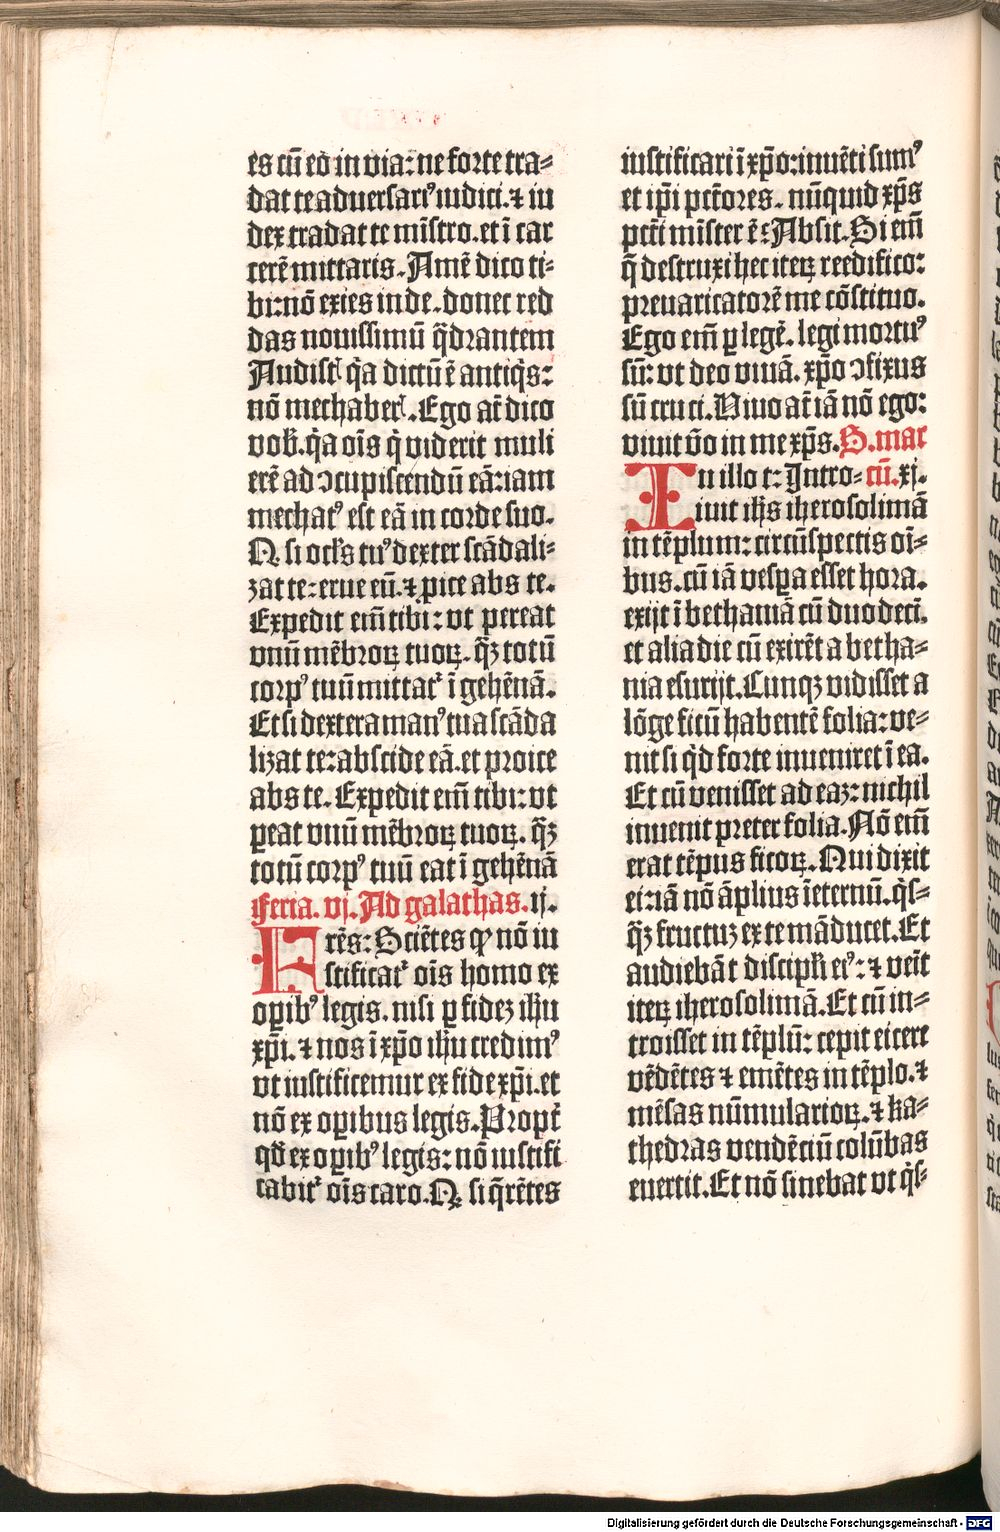 es cū eō in via: ne forte tra⸗
dat te adversariꝰ iudici. ⁊ iu
dex tradat te mīstro. et ī car
cerē mittaris. Amē dico ti⸗
bi: nō exies inde. donec red
das novissimū q̄drantem
Audistꝭ q̄a dictū ē antiq̄s:
nō mechaberꝭ. Ego at̄ dico
vob̄. q̄a oīs q̄ viderit muli
erē ad ↄcupiscendū eā: iam
mechatꝰ est eā in corde suo.
Ꝙ si ocl̓s tuꝰ dexter scādali⸗
zat te: erue eū. ⁊ ꝓice abs te.
Expedit em̄ tibi: vt pereat
vnū mēbroꝝ tuoꝝ. q̄ꝫ totū
corpꝰ tuū mittat᷑ ī gehēnā.
Et si dextera manꝰ tua scāda
lizat te: abscide eā. et proice
abs te. Expedit em̄ tibi: vt
ꝑeat vnū mēbroꝝ tuoꝝ. q̄ꝫ
totū corpꝰ tuū eat ī gehēnā
Feria. vj. Ad galathas. ij.
Frēs: Sciētes ꝙ nō iu
stificat᷑ oīs homo ex
oꝑibꝰ legis. nisi ꝑ fidez ihū
xp̄i. ⁊ nos ī xp̄o ihū credimꝰ
vt iustificemur ex fide xp̄i. et
nō ex oꝑibus legis. Propt̄
qd̄ ex oꝑibꝰ legis: nō iustifi
cabit᷑ oīs caro. Ꝙ si q̄rētes
iustificari ī xp̄o: inuēti sumꝰ
et ip̄i pct̄ores. nūquid xp̄s
pct̄i mīster ē: Absit. Si em̄
q̄ destruxi hec iteꝝ reedifico:
prevaricatorē me cōstituo.
Ego em̄ ꝑ legē. legi mortuꝰ
sū: vt deo vivā. xp̄o ↄfixus
sū cruci. Vivo at̄ iā nō ego:
vivit v̄o in me xp̄s. S. mar
In illo t̄: Intro⸗ cū. xj.
ivit ih̄s iherosolimā
in tēplum: circūspectis oī⸗
bus. cū iā vesꝑa esset hora.
exijt ī bethaniā cū duodecī.
et alia die cū exirēt a betha⸗
nia esurijt. Cunqꝫ vidisset a
lōge ficū habentē folia: ve⸗
nit si q̄d forte inveniret ī ea.
Et cū venisset ad eaz: nichil
invenit preter folia. Nō em̄
erat tēpus ficoꝝ. Qui dixit
ei: iā nō āplius īeternū. q̄s⸗
q̄ꝫ fructuz ex te māducet. Et
audiebāt discipl̓i eiꝰ: ⁊ veīt
iteꝝ iherosolimā. Et cū in⸗
troisset in tēplū: cepit eicere
vēdētes ⁊ emētes in tēplo. ⁊
mēsas nūmularioꝝ. ⁊ ka⸗
thedras vendētiū colūbas
evertit. Et nō sinebat vt q̄s⸗
Digitalisierung gefördert durch die Deutsche Forschungsgemeinschaft - DFG